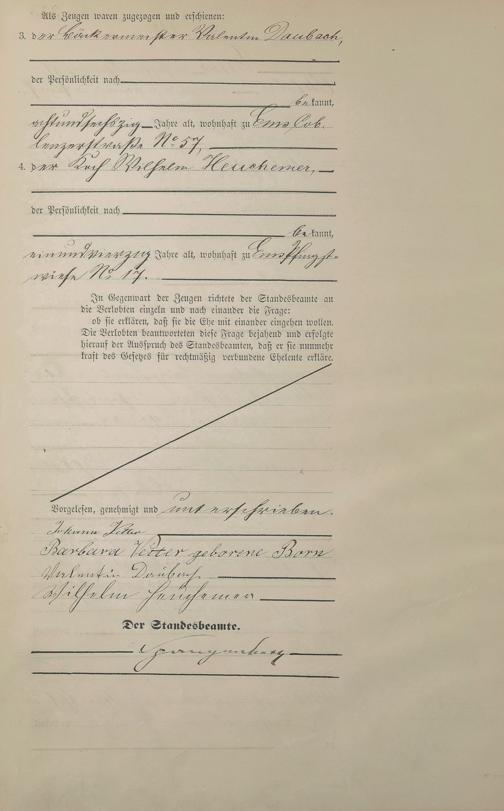 Als Zeugen waren zugezogen und erschienen:
3. der Bäckermeister Valentin Daubach,
der Persönlichkeit nach
be kannt,
achtundsechszig Jahre alt, wohnhaft zu Ems, Cob-
lenzerstraße No 57,
4. der Koch Wilhelm Heuchemer,
der Persönlichkeit nach
be kannt,
einundvierzig Jahre alt, wohnhaft zu Ems, Pfingst-
wiese No 17.
In Gegenwart der Zeugen richtete der Standesbeamte an
die Verlobten einzeln und nach einander die Frage:
ob sie erklären, daß sie die Ehe mit einander eingehen wollen.
Die Verlobten beantworteten diese Frage bejahend und erfolgte
hierauf der Ausspruch des Standesbeamten, daß er sie nunmehr
kraft des Gesetzes für rechtmäßig verbundene Eheleute erkläre.
Vorgelesen, genehmigt und unterschrieben.
Johann Vetter
Barbara Vetter geborene Born
Valentin Daubach
Wilhelm Heuchemer
Der Standesbeamte.
Spangenberg